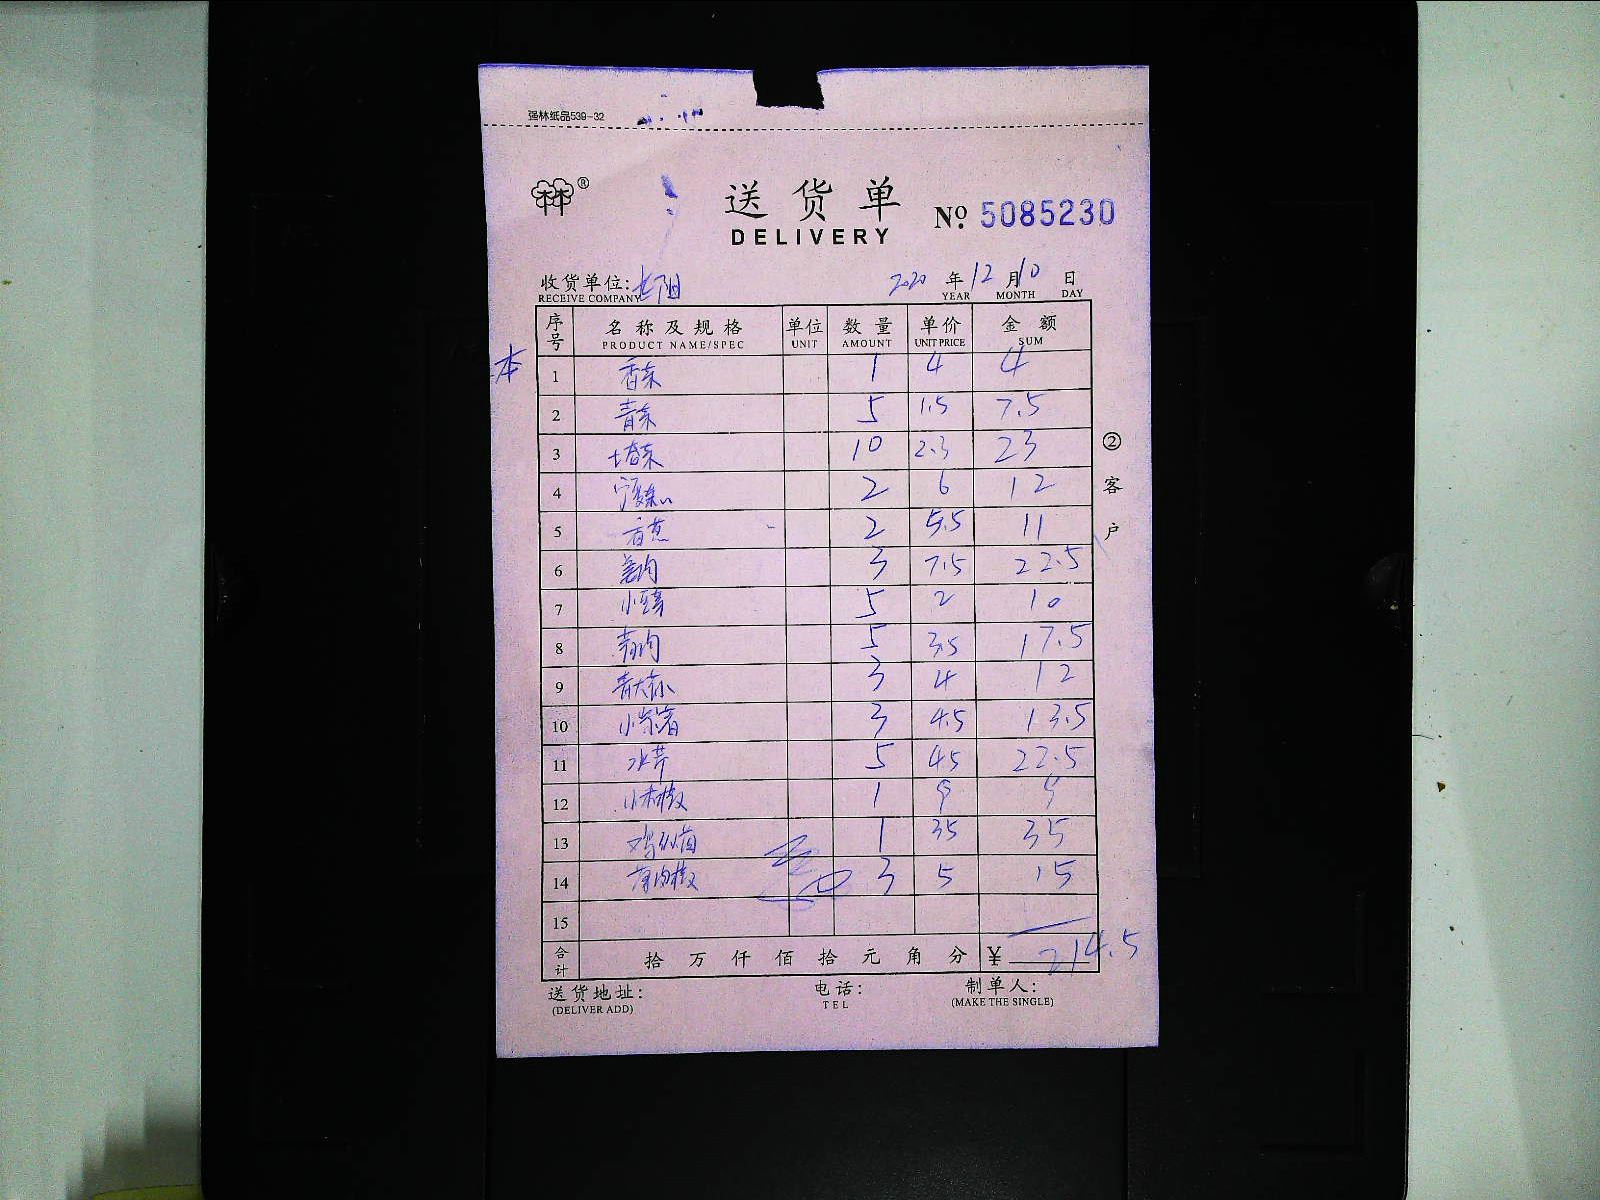 强林纸品539-32
®
送货单
DELIVERY
Nº. 5085230
收货单位:
RECEIVE COMPANY
2020 年 12 月 10 日
YEAR MONTH DAY
序号 名称及规格 单位 数量 单价 金额
PRODUCT NAME/SPEC UNIT AMOUNT UNIT PRICE SUM
本
1 香菜 1 4 4
2 青菜 5 1.5 7.5
3 10 2.3 23
4 2 6 12
5 香葱 2 5.5 11
6 3 7.5 22.5
7 5 2 10
8 5 3.5 17.5
9 3 4 12
10 3 4.5 13.5
11 水芹 5 4.5 22.5
12 小米椒 1 9 9
13 1 35 35
14 3 5 15
15
合计 拾 万 仟 佰 拾 元 角 分 ¥ 214.5
② 客户
送货地址: 电话: 制单人:
(DELIVER ADD) TEL (MAKE THE SINGLE)